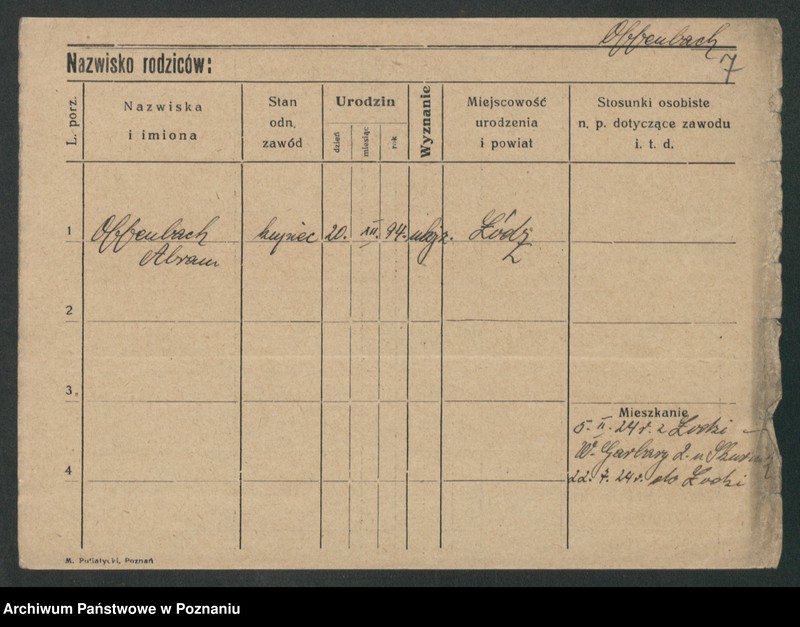 Offenbach
7
Nazwisko rodziców:
L. porz.
Nazwiska
i imiona
Stan
odn.
zawód
Urodzin
dzień
miesiąc
rok
Wyznanie
Miejscowość
urodzenia
i powiat
Stosunki osobiste
n. p. dotyczące zawodu
i. t. d.
1
Offenbach
Abram
kupiec
20.
XII.
94.
mojż.
Łódź
2
3
Mieszkanie
5. II. 24 r. z Łodzi
W. Garbary 2. u
4
22. 4. 24 r. do Łodzi
M. Putiatycki, Poznań
Archiwum Państwowe w Poznaniu